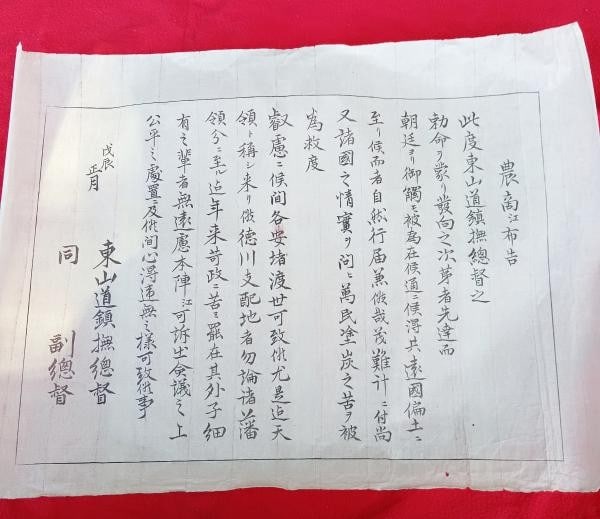 農商江布告
此度東山道鎮撫總督之
勅命ヲ蒙リ發向之次第者先達而
朝廷ヨリ御觸モ被為在候通ニ候得共遠國偏土ニ
至リ候而者自然行届兼候哉茂難計ニ付尚
又諸國之情實ヲ問ニ萬民塗炭之苦ヲ被
為救度
叡慮ニ候間各安堵渡世可致候尤是迠天
領ト稱シ来リ候徳川支配地者勿論諸藩
領分ニ至ル迠年来苛政ニ苦ミ罷在其外子細
有之輩者無遠慮本陣江可訴出会議之上
公平之處置ニ及候間心得違無之様可致候事
戊辰
正月
東山道鎮撫總督
同 副總督